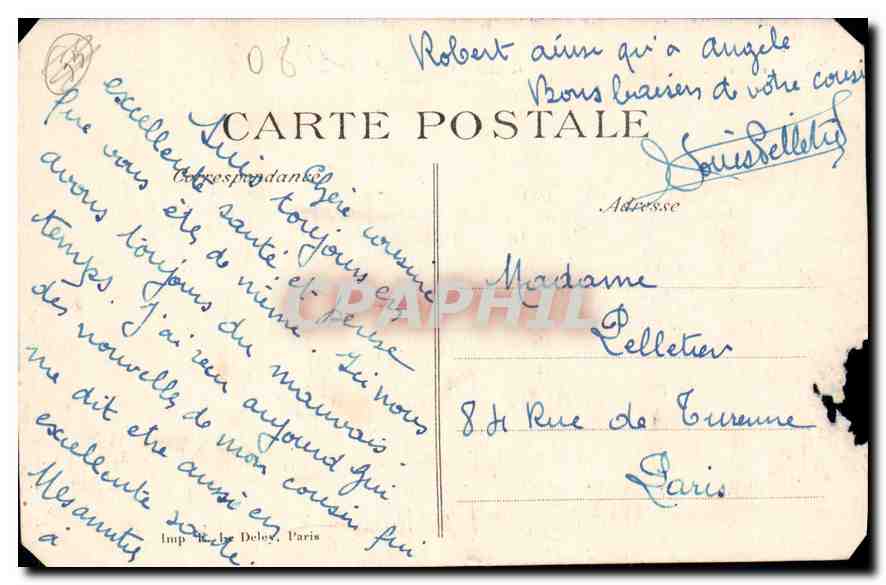 CARTE POSTALE
Correspondance
Adresse
Chère cousine
Suis toujours en
excellente santé et pense
que vous êtes de même. Ici nous
avons toujours du mauvais
temps. J'ai reçu aujourd'hui
des nouvelles de mon cousin qui
me dit être aussi en
excellente santé.
Mes amitiés
à
Robert ainsi qu'à Angèle
Bons baisers de votre cousin
Louis Pelletier
Madame
Pelletier
84 Rue de Turenne
Paris
Imp. E. Le Deley, Paris
CPAPHIL
06